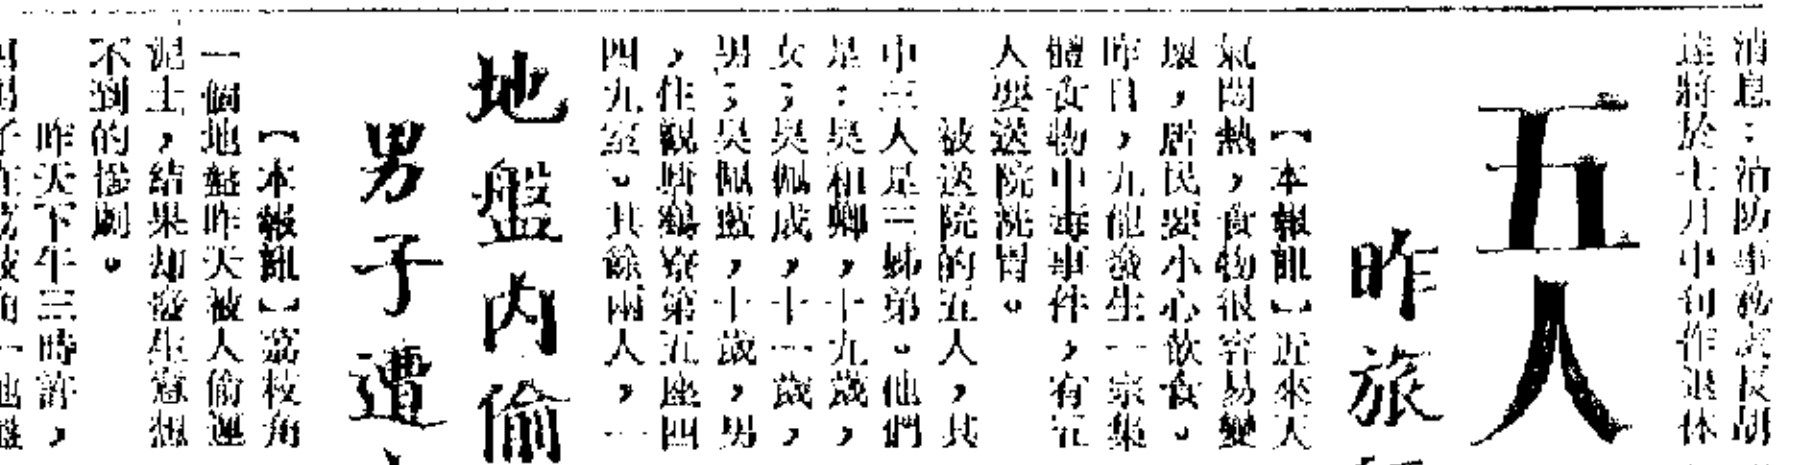 消息：消防事務長胡
達將於七月中旬作退休
五人
昨旅
【本報訊】近來天
氣悶熱，食物很容易變
壞，居民要小心飲食。
昨日，九龍發生一宗集
體食物中毒事件，有五
人要送院洗胃。
被送院的五人，其
中三人是三姊弟。他們
是：吳和卿，十九歲，
女；吳佩成，十一歲，
男；吳佩藍，十歲，男
，住觀塘鷄寮第五座四
四九室。其餘兩人，一
地盤内偷
男子遭
【本報訊】荔枝角
一個地盤昨天被人偷運
泥土，結果却發生意想
不到的慘劇。
昨天下午三時許，